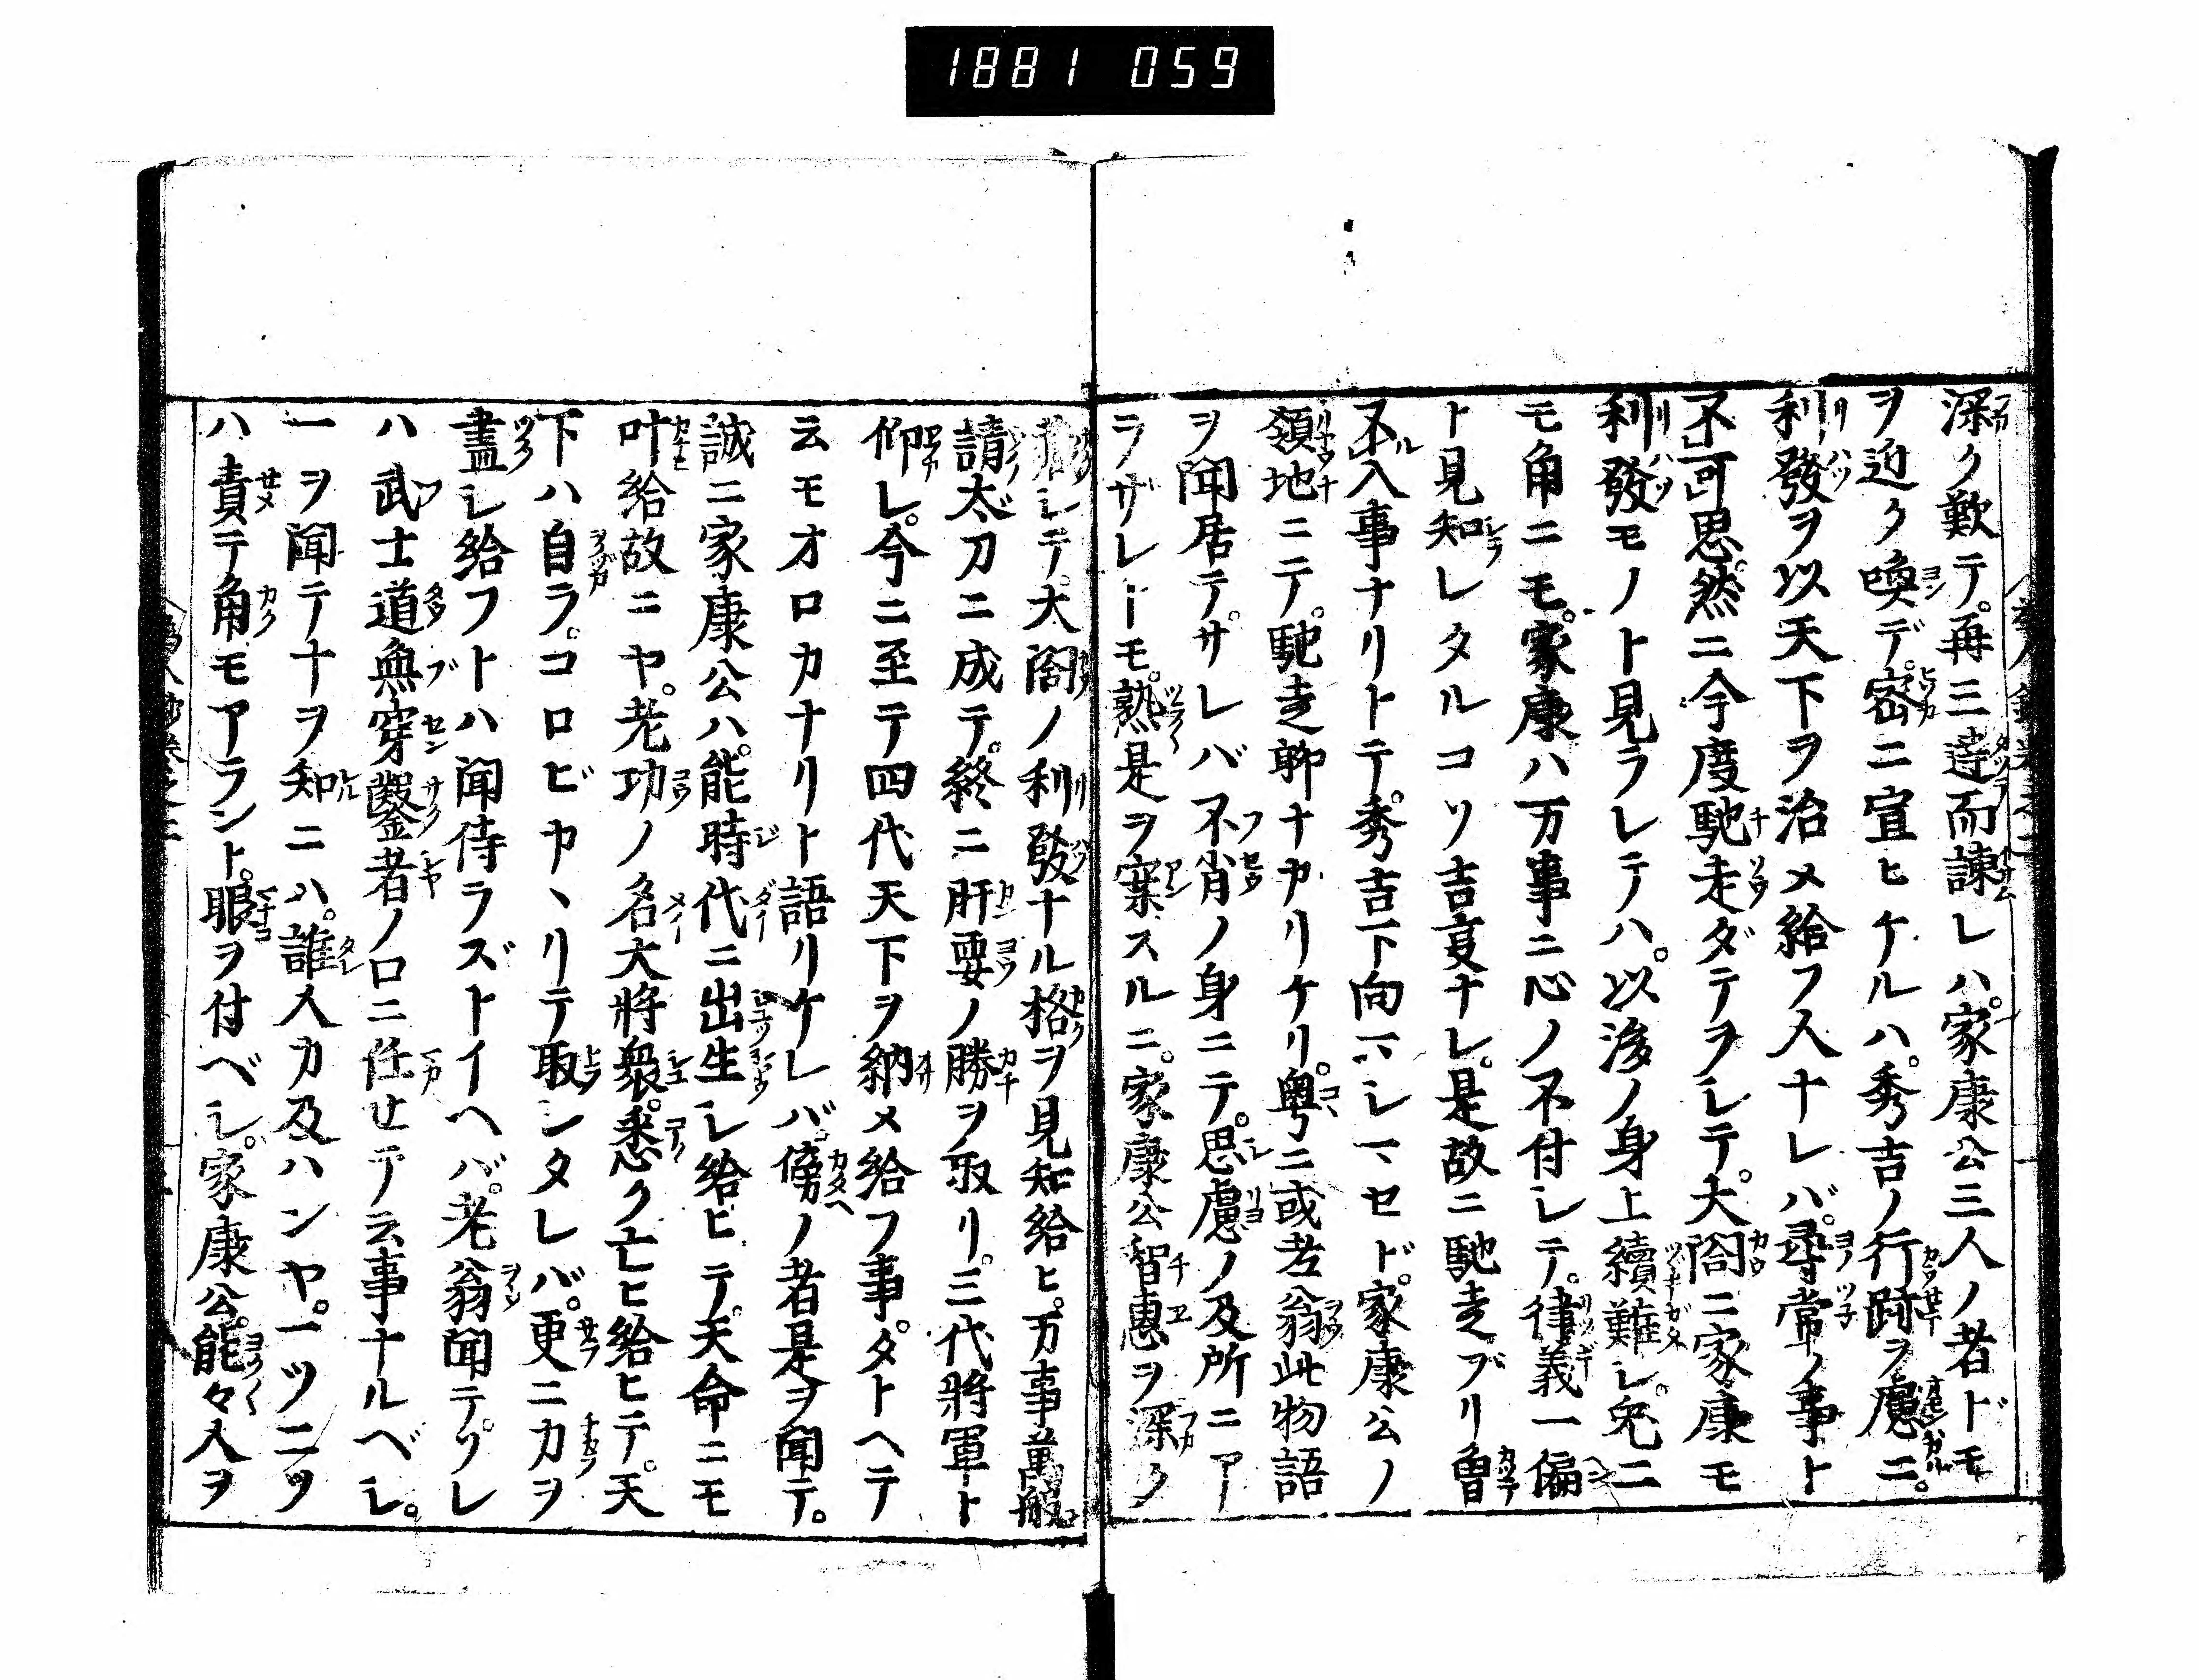 1881 059
深ク歎テ。再三達而諫レハ。家康公三人ノ者ドモ
ヲ近ク喚デ。密ニ宣ヒケルハ。秀吉ノ行跡ヲ慮ニ。
利發ヲ以天下ヲ治メ給フ人ナレバ。尋常ノ事ト
不可思。然ニ今度馳走ダテヲシテ。大閤ニ家康モ
利發モノト見ラレテハ。以後ノ身上續難シ。兎ニ
モ角ニモ。家康ハ万事ニ心ノ不付シテ。律義一偏
ト見知レタルコソ吉事ナレ。是故ニ馳走ブリ曾
不入事ナリトテ。秀吉下向マシマセド。家康公ノ
領地ニテ。馳走聊ナカリケリ。粤ニ或老翁此物語
ヲ聞居テ。サレバ不肖ノ身ニテ。思慮ノ及所ニア
ラザレドモ。熟是ヲ案スルニ。家康公智惠ヲ深ク
藏シテ。大閤ノ利發ナル格ヲ見知給ヒ。万事萬般。
請太刀ニ成テ。終ニ肝要ノ勝ヲ取リ。三代將軍ト
仰レ。今ニ至テ四代天下ヲ納メ給フ事。タトヘテ
云モオロカナリト語リケレバ。傍ノ者是ヲ聞テ。
誠ニ家康公ハ。能時代ニ出生シ給ヒテ。天命ニモ
叶給故ニヤ。老功ノ名大將衆。悉ク亡ヒ給ヒテ。天
下ハ自ラ。コロビヤヽリテ取ンタレバ。更ニカヲ
盡シ給フトハ聞侍ラズトイヘバ。老翁聞テ。ソレ
ハ武士道無穿鑿者ノ口ニ任セテ云事ナルベシ。
一ヲ聞テ十ヲ知ニハ。誰人カ及ハンヤ。一ツニツ
ハ責テ角モアラント。眼ヲ付ベシ。家康公。能々人ヲ